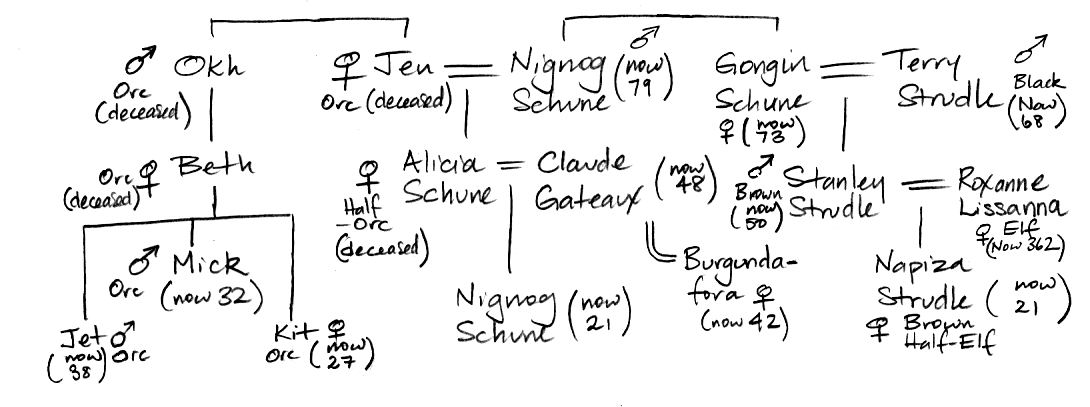 ♂ Okh
Orc
(deceased)
♀ Jen
Orc (deceased)
Nignog
Schune
♂
(now
79)
Gongin
Schune
♀ (now
73)
Terry
Strudle
♂
Black
(Now
68)
Orc ♀ Beth
(deceased)
♀
Half
-Orc
(deceased)
Alicia
Schune
Claude
Gateaux
(now
48)
♂
Brown
(now
50)
Stanley
Strudle
Roxanne
Lissanna
♀ Elf
(Now 362)
♂ Mick
Orc (now 32)
Burgunda-
fora ♀
(now 42)
Napiza
Strudle (now
21)
♀ Brown
Half-Elf
Nignog
Schune
(now
21)
Jet ♂
(now
38) Orc
Kit ♀
Orc (now
27)